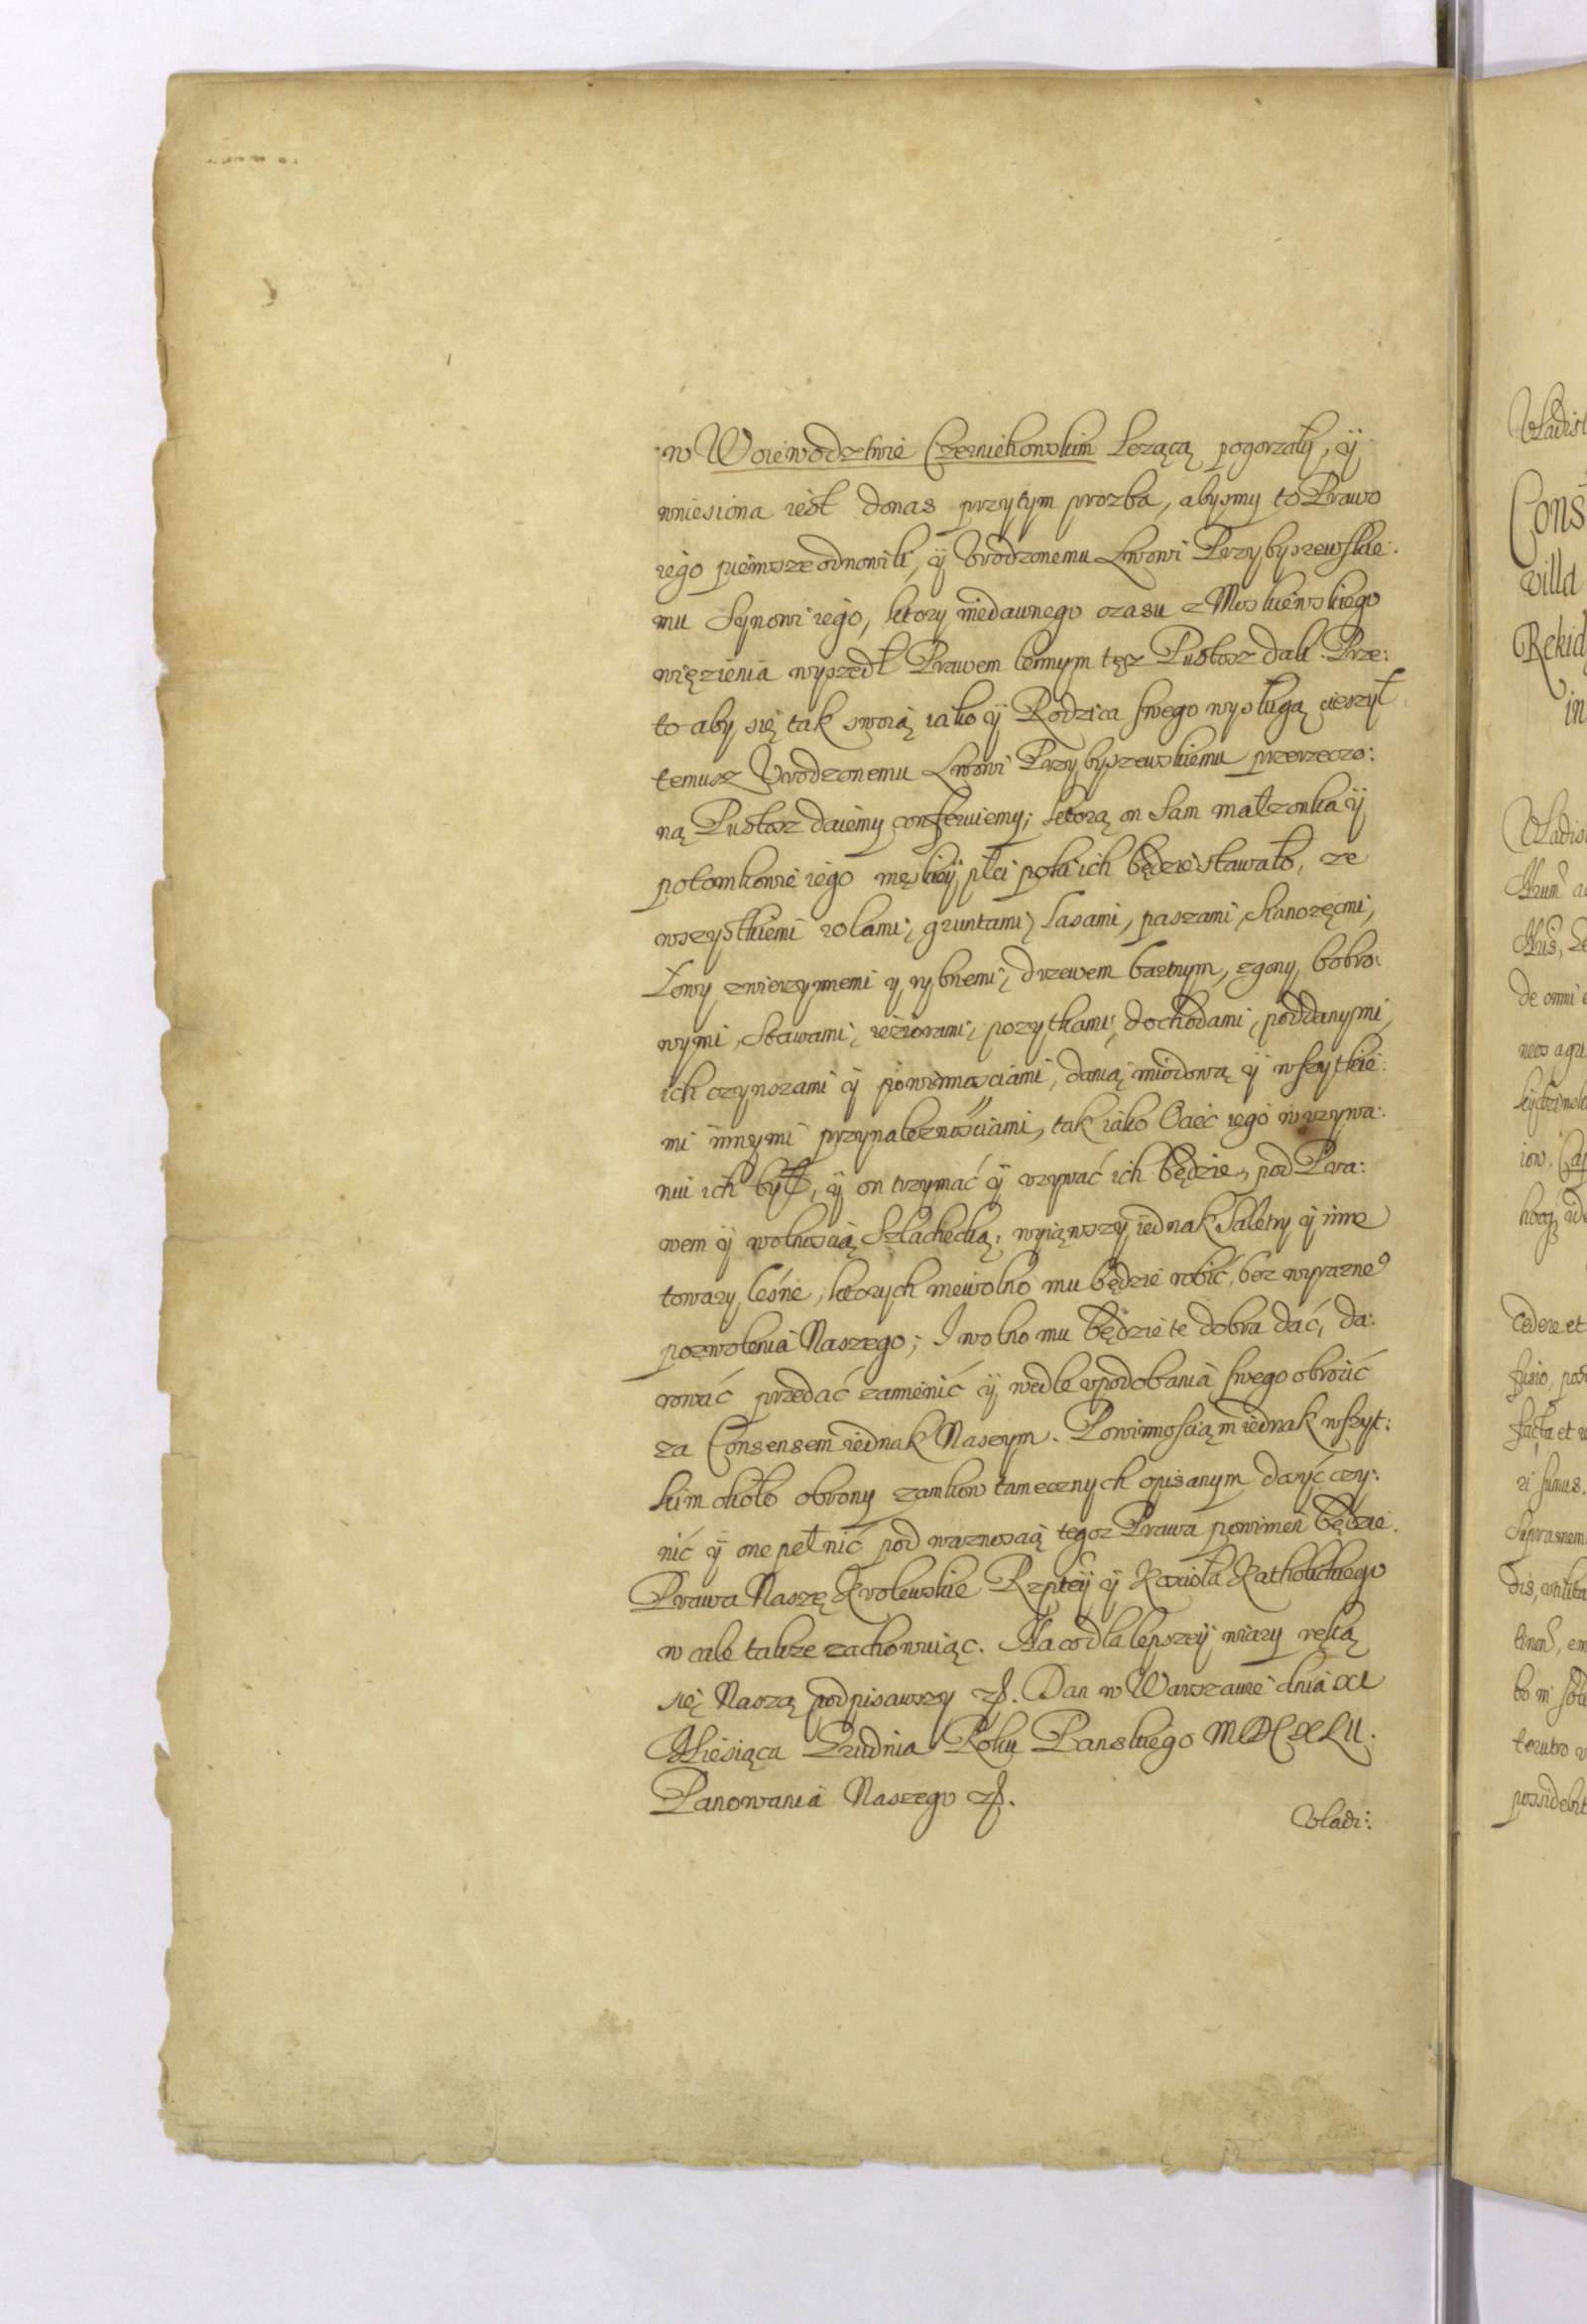 w Woiewodztwie Czerniehowskim Lezącą pogorzały, ÿ
wniesiona iest donas przytym prozba, abysmy to Prawo
iego pierwsze odnowili, ÿ Vrodzonemu Lwowi Przybyszewskie:
mu Synowi iego, ktory niedawnego czasu z Moskiewskiego
więzienia wyszedł Prawem lennym tęsz Pustosz dali. Prze:
to aby się tak swoią iako ÿ Rodzica swego wysługą cieszył
temusz Vrodzonemu Lwowi Przybyszewskiemu przerzeczo:
ną Pustosz daiemy conferuiemy; ktorą on Sam małzonka ÿ
potomkowie iego męskieÿ płci poki ich będzie stawało, ze
wszystkiemi rolami, gruntami, Lasami, paszami, Sianozęćmi,
Łowy zwierzynnemi y rybnemi, drzewem bartnym, zgony bobro:
wymi, Stawami, ieziorami, pozytkami, dochodami, poddanymi,
ich czynszami ÿ powinnosciami, danią miodową ÿ wszytkie:
mi innymi przynaleznosciami, tak iako Ociec iego w vzywa:
niu ich był, ÿ on trzymać ÿ vzywać ich będzie, pod Pra:
wem ÿ wolnoscią Szlachecką, wyiąwszy iednak Saletry ÿ inne
towary leśne, ktorych niewolno mu będzie robić, bez wyrazne°
pozwolenia Naszego; I wolno mu będzie te dobra dać, da:
rować przedać zamienić ÿ wedle vpodobania swego obroćić
za Consensem iednak Naszym. Powinnosciąm iednak wszyt:
kim około obrony zamkow tamecznych opisanym dosyć czy:
nić ÿ one pełnić pod waznoscią tegoz Prawa powinien będzie.
Prawa Naszę Krolewskie Rzptey ÿ Koscioła Katholickiego
w cale takze zachowuiąc. Na co dla lepszeÿ wiary ręką
się Naszą podpisawszy
Dan w Warszawie dnia XI
Miesiąca Grudnia Roku Panskiego MDCXLII.
Panowania Naszego
Vladi: